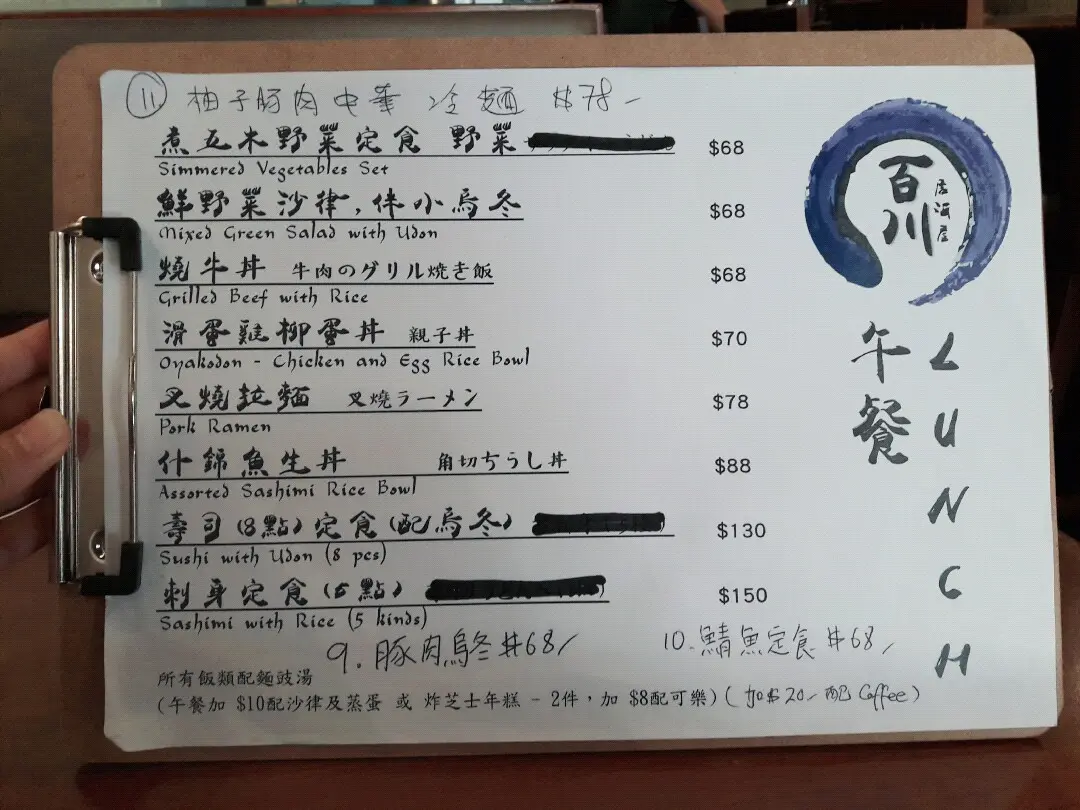 11 柚子豚肉中華 冷麵 $78-
煮五木野菜定食 野菜 $68
Simmered Vegetables Set
鮮野菜沙律,伴小烏冬 $68
Mixed Green Salad with Udon
燒牛丼 牛肉のグリル焼き飯 $68
Grilled Beef with Rice
滑蛋雞柳蛋丼 親子丼 $70
Oyakodon - Chicken and Egg Rice Bowl
叉燒拉麵 叉燒ラーメン $78
Pork Ramen
什錦魚生丼 角切ちらし丼 $88
Assorted Sashimi Rice Bowl
壽司(8點)定食(配烏冬) $130
Sushi with Udon (8 pcs)
刺身定食(5點) $150
Sashimi with Rice (5 kinds)
9. 豚肉烏冬 $68/
10. 鯖魚定食 $68/
所有飯類配麵豉湯
(午餐加 $10配沙律及蒸蛋 或 炸芝士年糕 - 2件,加 $8配可樂)(加$20/配 Coffee)
百川
居酒屋
午餐
LUNCH